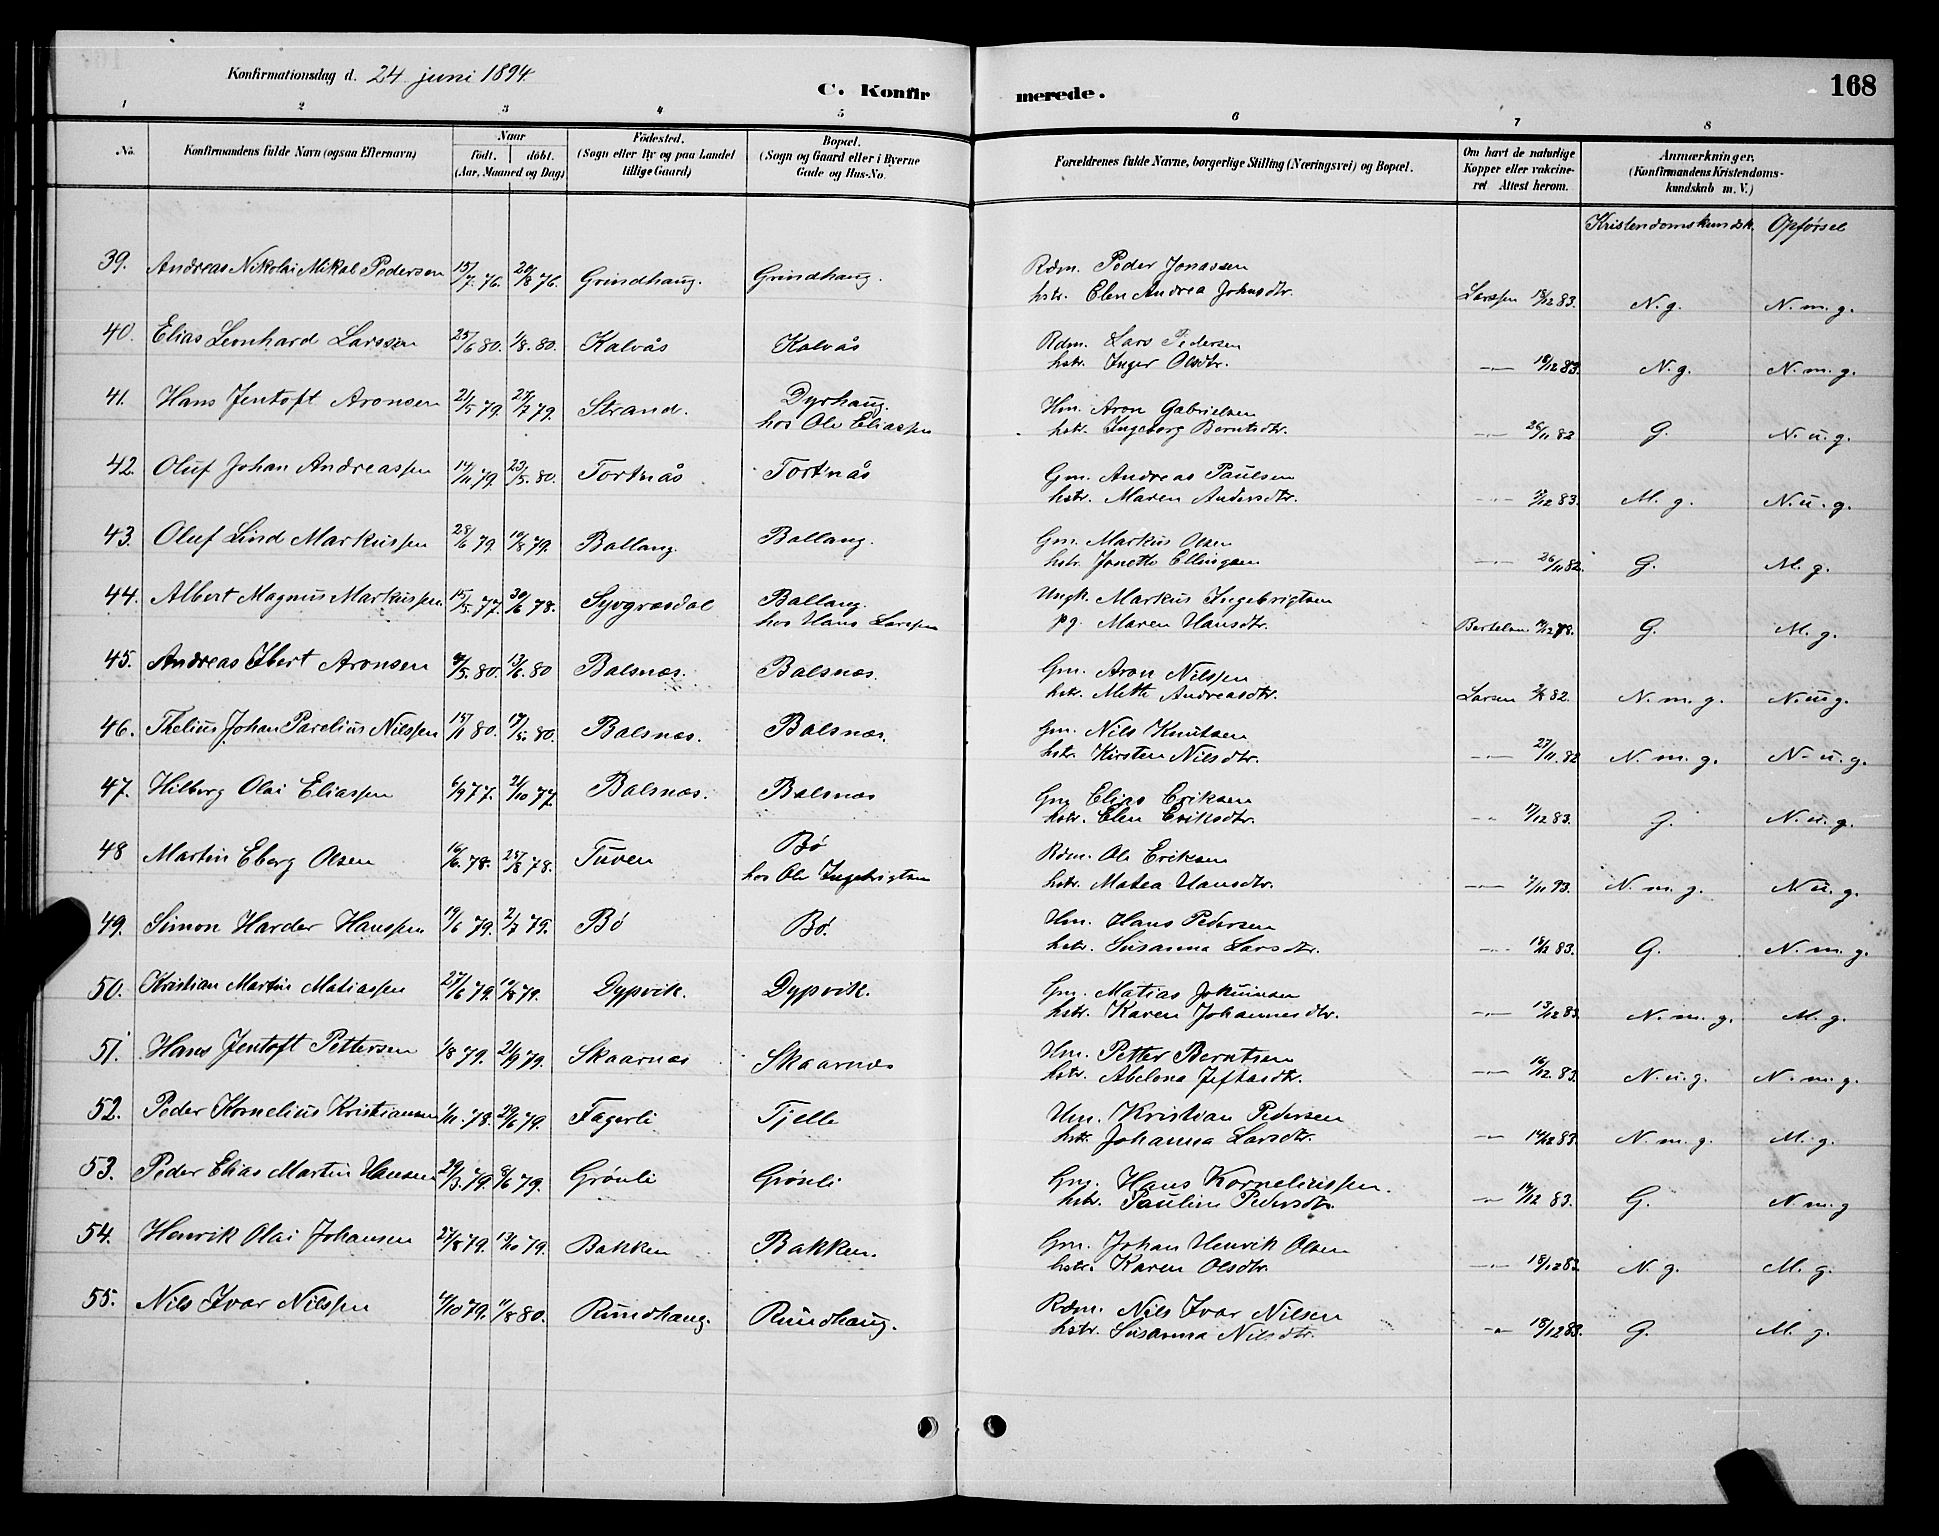 Konfirmationsdag d. 24 juni 1894.
C. Konfirmerede.
168
1 2 3 4 5 6 7 8
No. | Konfirmandens fulde Navn (ogsaa Efternavn) | Naar født. døbt. (Aar, Maaned og Dag) | Fødested. (Sogn eller By og paa Landet tillige Gaard) | Bopæl. (Sogn og Gaard eller i Byerne Gade og Hus-No. | Forældrenes fulde Navne, borgerlige Stilling (Næringsvei) og Bopæl. | Om havt de naturlige Kopper eller vakcineret Attest herom. | Anmærkninger. (Konfirmandens Kristendomskundskab m. V.)
Kristendomskundsk. Opførsel
39. Andreas Nikolai Mikal Pedersen 15/7 76. 20/8 76. Grindhaug. Grindhaug. Rdm. Peder Jonassen Larssen 18/12 83. N. g. N. m. g.
hstr. Elen Andrea Johnsdtr.
40. Elias Leonhard Larssen 25/6 80. 1/8. 80. Kalvås Kalvås Rdm. Lars Pedersen
hstr. Inger Olsdtr. -"- 18/12 83. N. g. N. m. g.
41. Hans Jentoft Aronsen 21/5 79. 27/7 79. Strand. Dyrhaug. Hm. Aron Gabrielsen
hos Ole Eliassen hstr. Ingeborg Berntsdtr. -"- 26/11 82 G. N. u. g.
42. Oluf Johan Andreassen 14/11 79. 23/5. 80. Tortnås Tortnås Gm. Andreas Paulsen
hstr. Maren Andersdtr. -"- /12 83. M. g. N. u. g.
43. Oluf Lind Markussen 28/6 79. 10/8 79. Ballang. Ballang. Gm. Markus Olsen
hstr. Jonette Ellingsen -"- 26/11 82. G. M. g.
44. Albert Magnus Markussen 15/5. 77. 30/6 78. Syvgræsdal Ballang. Ungk. Markus Ingebrigtsen
hos Hans Larssen pg. Maren Hansdtr. Bertelsen /12 78. G. M. g.
45. Andreas Ebert Aronsen /5. 80. 13/6 80 Balsnes. Balsnes. Gm. Aron Nilssen
hstr. Mette Andreasdtr. Larsen 82. N. m. g. N. u g.
46. Thelius Johan Parelius Nilssen 15/1 80. 17/5. 80. Balsnes. Balsnes. Gm. Nils Knutsen
hstr. Kirsten Nilsdtr. -"- 27/11. 82 N. m. g. N. u. g.
47. Hilberg Olai Eliassen 6/9 77. 21/10 77. Balsnes. Balsnes Gm. Elias Eriksen
hstr. Elen Eriksdtr. " 17/12 83. G. N. u. g.
48 Martin Eberg Olsen 16/6. 78. 25/8 78. Tuven Bø Rdm. Ole Eriksen
hos Ole Ingebrigtsen hstr. Matea Hansdtr. -"- 7/11 93. N. m. g. N u. g.
49. Simon Harder Hanssen 19/6 79. 2/7 79. Bø Bø. Hm. Hans Pedersen
hstr. Susanna Larsdtr. -"- 18/12 83. G. N. m. g.
50. Kristian Martin Matiassen 27/6 79. 17/8 79. Dypvik. Dypvik. Gm. Matias Jokumsen
hstr. Karen Johannesdtr. -"- 13/12 83. N. m. g. M. g.
51. Hans Jentoft Pettersen 1/8 79. 21/9 79. Skaarnes Skaarnes Hm. Petter Berntsen
hstr. Abelona Jeftasdtr. -"- 16/12. 83. N. u. g. N. m. g.
52. Peder Kornelius Kristiansen 1/11. 78. 29/6 79. Fagerli Tjelle Hm. Kristian Pedersen
hstr. Johanna Larsdtr. -"- 14/12 83. N. m. g. M. g.
53. Peder Elias Martin Hansen 29/3. 79. 8/6 79. Grönli Grönli Gm. Hans Korneliussen.
hstr. Pauline Pedersdtr. -"- 14/12 83. G. N. m. g
54. Henrik Olai Johansen 27/8 79. 19/10 79. Bakken Bakken. Gm. Johan Henrik Olsen
hstr. Karen Olsdtr. -"- 18/12 82 N. g. M. g.
55. Nils Ivar Nilssen /10 79. /8 80. Rundhaug. Rundhaug. Rdm. Nils Ivar Nilsen
hstr. Susanna Nilsdtr. -"- 18/12 83. G. M. g.